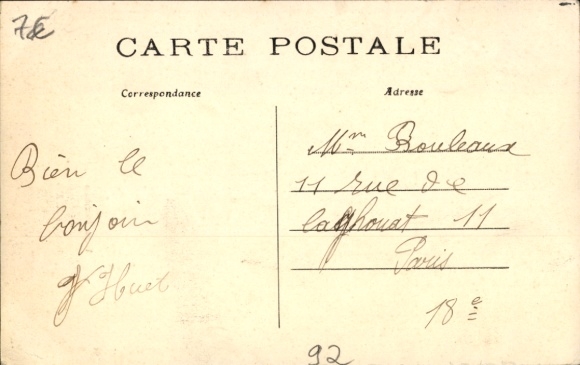 7€
CARTE POSTALE
Correspondance
Adresse
Bien le
bonjoir
Huet
Mr Bouleaux
11 rue de
laghouat 11
Paris
18e
92